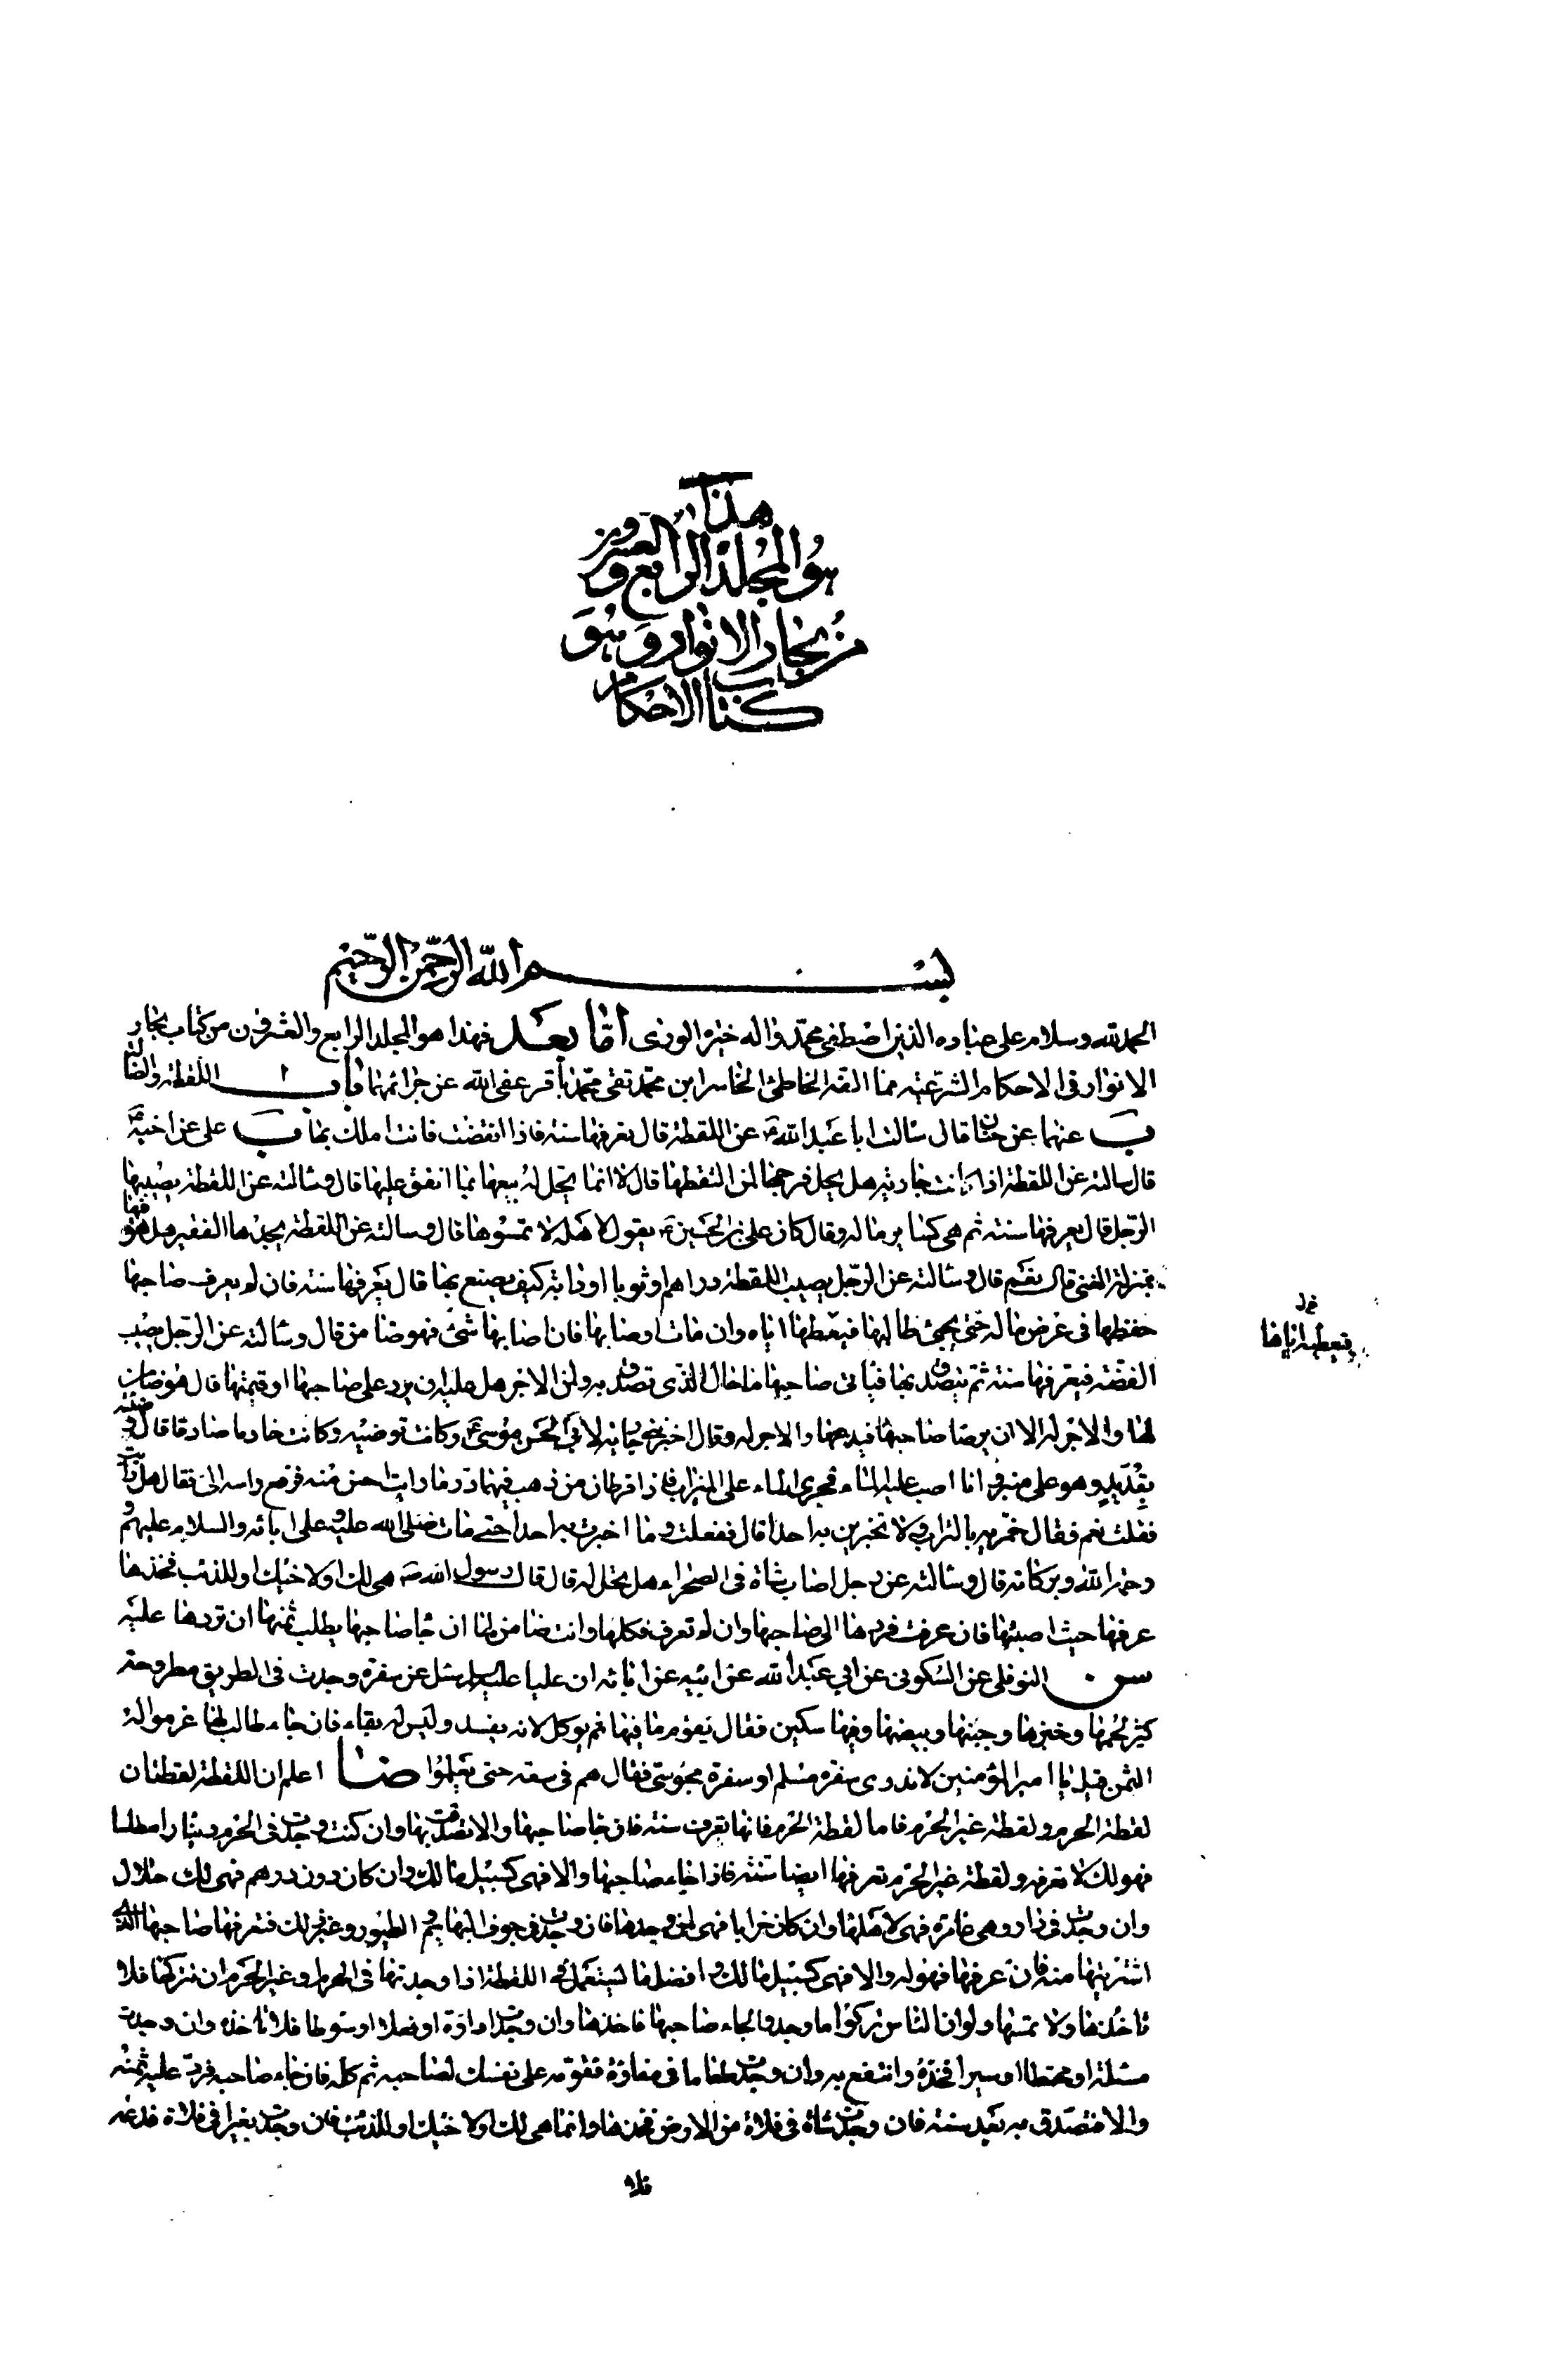 هذا
هو المجلد الرابع والعشرون
من بحار الانوار وهو
كتاب الاحكام
بسم الله الرحمن الرحيم
الحمد لله وسلام على عباده الذين اصطفى محمد واله خيرة الورى اما بعد فهذا هو المجلد الرابع والعشرون من كتاب بحار
الانوار فى الاحكام الشرعية مما الفه الخاطئ الخاسر ابن محمد تقى محمد باقر عفى الله عن جرائمهما باب ١ اللقطة والضالة
ب عنهما عن حنان قال سالت ابا عبد الله ع عن اللقطة قال تعرفها سنة فاذا انقضت فانت املك بها ب على عن اخيه ع
قال سالته عن اللقطة اذا كانت جارية هل يحل فرجها لمن التقطها قال لا انما يحل له بيعها بما انفق عليها قال وسالته عن اللقطة يصيبها
الرجل قال يعرفها سنة ثم هى كسائر ماله وقال كان على بن الحسين ع يقول لاهله لا تمسوها قال وسالته عن اللقطة يجدها الفقير هل هو فيها
بمنزلة الغنى قال نعم قال وسالته عن الرجل يصيب اللقطة دراهم او ثوبا او دابة كيف يصنع بها قال يعرفها سنة فان لم يعرف صاحبها
حفظها فى عرض ماله حتى يجئ طالبها فيعطيها اياه وان مات اوصى بها فان اصابها شئ فهو ضامن قال وسالته عن الرجل يصيب
فيعطيه اياها
الفضة فيعرفها سنة ثم يتصدق بها فياتى صاحبها ما حال الذى تصدق به ولمن الاجر هل عليه ان يرد على صاحبها او قيمتها قال هو ضامن
لها والاجر له الا ان يرضا صاحبها فيدعها والاجر له وقال اخبرتنى جارية لابى الحسن موسى ع وكانت توضيه وكانت خادما صادقا قالت وضيته
بقديد وهو على منبر وانا اصب عليه الماء فجرى الماء على الميزاب فاذا قرطان من ذهب فيهما در ما رايت احسن منه فرفع راسه الى فقال هل رايت
فقلت نعم فقال خمريه بالتراب ولا تخبرين به احدا قال ففعلت وما اخبرت به احدا حتى مات صلى الله عليه وعلى ابائه والسلام عليهم و
رحمة الله وبركاته قال وسالته عن رجل اصاب شاة فى الصحراء هل يحل له قال قال رسول الله ص هى لك او لاخيك او للذئب فخذها
عرفها حيث اصبتها فان عرفت فردها الى صاحبها وان لم تعرف فكلها وانت ضامن لها ان جا صاحبها يطلب ثمنها ان تردها عليه
سن النوفلى عن السكونى عن ابي عبد الله عن ابيه عن ابائه ان عليا عليه السلم سئل عن سفرة وجدت فى الطريق مطروحة
كثير لحمها وخبزها وجبنها وبيضها وفيها سكين فقال يقوم ما فيها ثم يوكل لانه يفسد وليس له بقاء فان جاء طالب لها غرموا له
الثمن قيل يا امير المؤمنين لا ندرى سفرة مسلم او سفرة مجوسى فقال هم فى سعة حتى يعلموا ضا اعلم ان اللقطة لقطتان
لقطة الحرم ولقطة غير الحرم فاما لقطة الحرم فانها تعرف سنة فان جا صاحبها والا تصدقت بها وان كنت وجدت فى الحرم دينارا مطلسا
فهو لك لا تعرفه ولقطة غير الحرم تعرفها ايضا سنة فاذا جاء صاحبها والا فهى كسبيل مالك وان كان دون درهم فهى لك حلال
وان وجدت فى دار وهى عامرة فهى لاهلها وان كان خرابا فهى لمن وجدها فان وجدت فى جوف البهايم و الطيور وغير ذلك فتعرفها صاحبها الذى
اشتريتها منه فان عرفها فهو له والا فهى كسبيل مالك و افضل ما تستعمله فى اللقطة اذا وجدتها فى الحرم او غير الحرم ان تتركها فلا
تاخذها ولا تمسها ولو ان الناس تركوا ما وجدوا لجاء صاحبها فاخذها وان وجدت اداوة او نعلا او سوطا فلا تاخذه وان وجدت
مسلة او مخيطا او سيرا فخذه وانتفع به وان وجدت طعاما فى مفازة فقومه على نفسك لصاحبه ثم كله فان جاء صاحبه فرد عليه ثمنه
والا فتصدق به بعد سنة فان وجدت شاة فى فلاة من الارض فخذها وانما هى لك او لاخيك او للذئب فان وجدت بعيرا فى فلاة فدعه
فلا